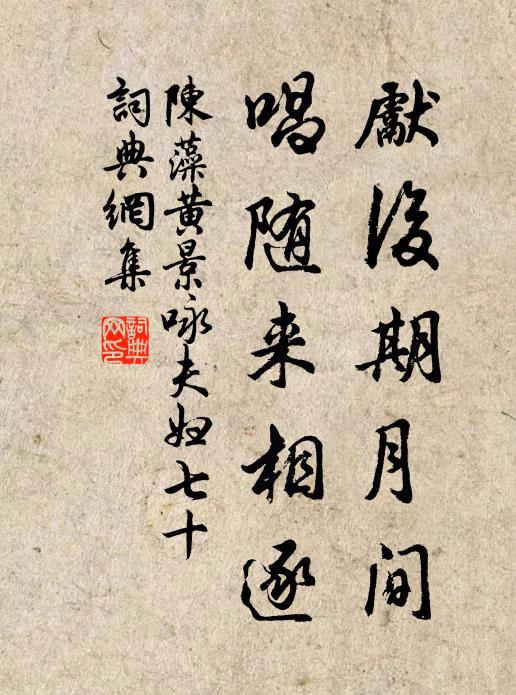 獻後期月間
唱随来相逐
陳藻黄景咏夫妇七十
詞典網集
詞典
网印